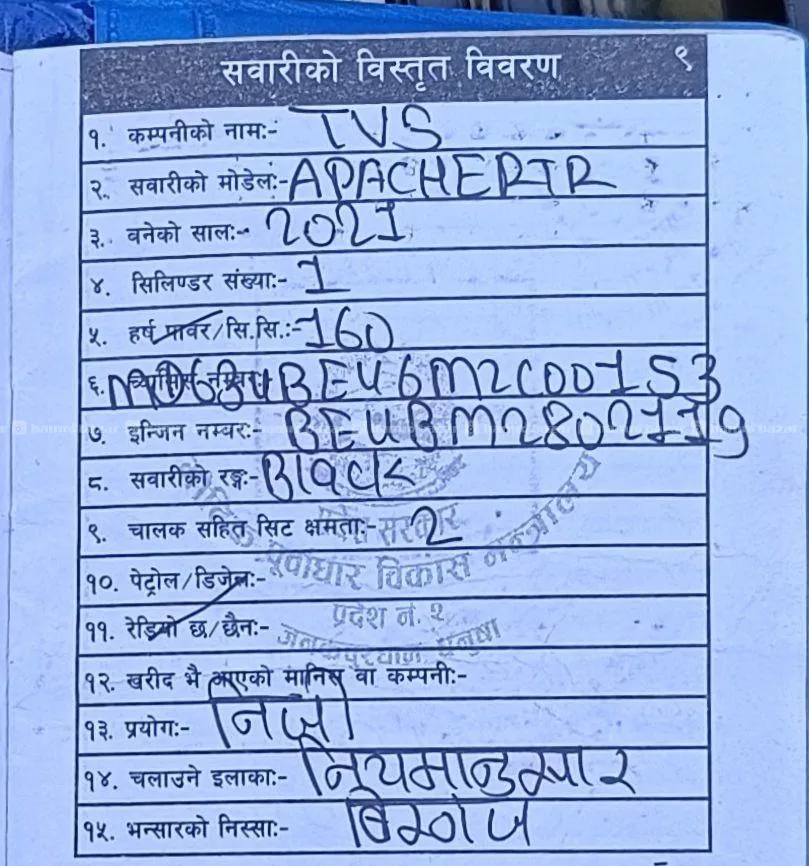 सवारीको विस्तृत विवरण ९
१. कम्पनीको नामः- TVS
२. सवारीको मोडेलः- APACHERTR
३. वनेको सालः- 2021
४. सिलिण्डर संख्याः- 1
५. हर्ष पावर/सि.सि.ः- 160
६. च्यासिस नम्बरः- MD634BE46M2C00153
७. इन्जिन नम्बरः- BE4BM2802119
८. सवारीको रङ्गः- Black
९. चालक सहित सिट क्षमताः- 2
१०. पेट्रोल/डिजेलः-
११. रेडियो छ/छैनः-
१२. खरीद भै आएको मानिस वा कम्पनीः-
१३. प्रयोगः- निजी
१४. चलाउने इलाकाः- नियमानुसार
१५. भन्सारको निस्साः- बिरगंज
प्रदेश सरकार
भौतिक पूर्वाधार विकास मन्त्रालय
प्रदेश नं. २
जनकपुरधाम, धनुषा
hamro bazar